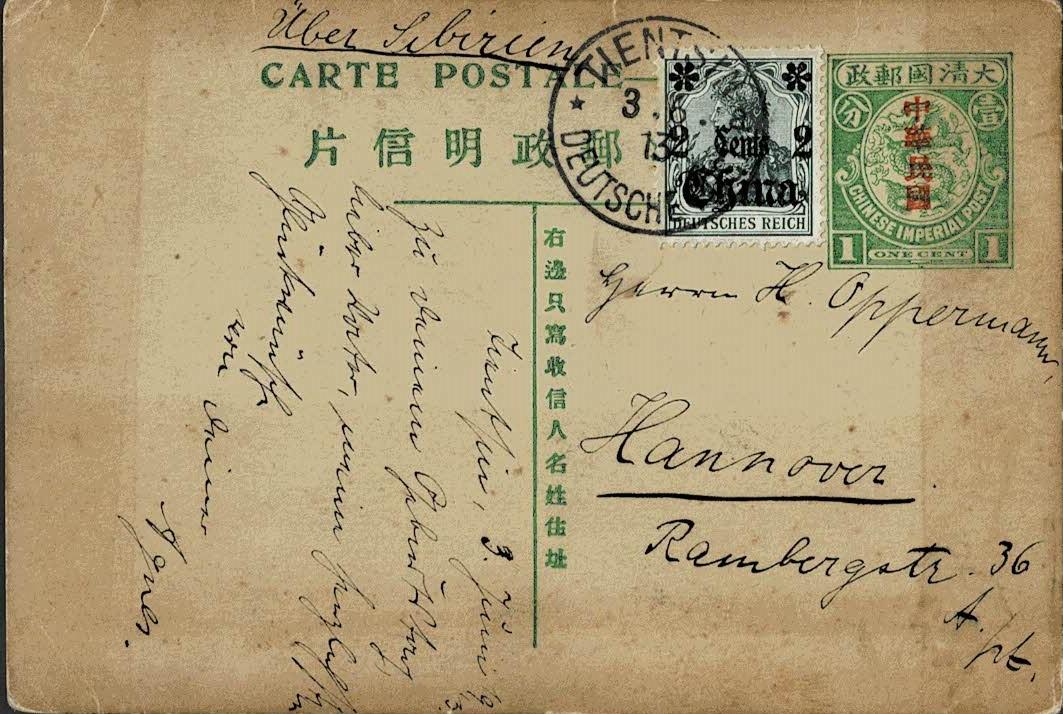 Über Sibirien
CARTE POSTALE
郵政明信片
TIENTS
3 6
13
DEUTSCHE
2 Cents 2
China
DEUTSCHES REICH
大清國郵政
壹分
中華民國
CHINESE IMPERIAL POST
1 ONE CENT 1
右邊只寫收信人名姓住址
Herrn H. Oppermann,
Hannover
Rambergstr. 36
A. pt.
Tientsin, 3. Juni 1913
Zu Deinem Geburtstag
lieber Vater, meine herzlichst
Glückwünsche
von Deiner
Agnes.